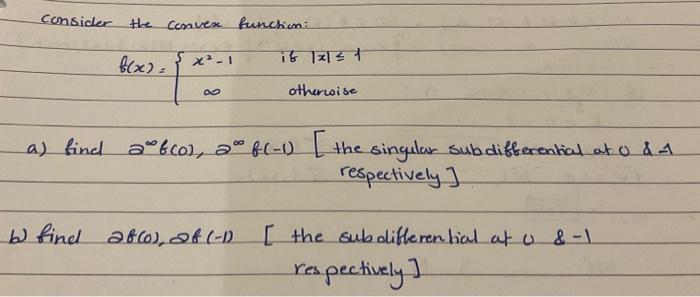 consider the convex function:
f(x) = { x² - 1 if |x| ≤ 1
∞ otherwise
a) find ∂^∞ f(0), ∂^∞ f(-1) [ the singular subdifferential at 0 & -1
respectively ]
b) find ∂f(0), ∂f(-1) [ the subdifferential at 0 & -1
respectively ]